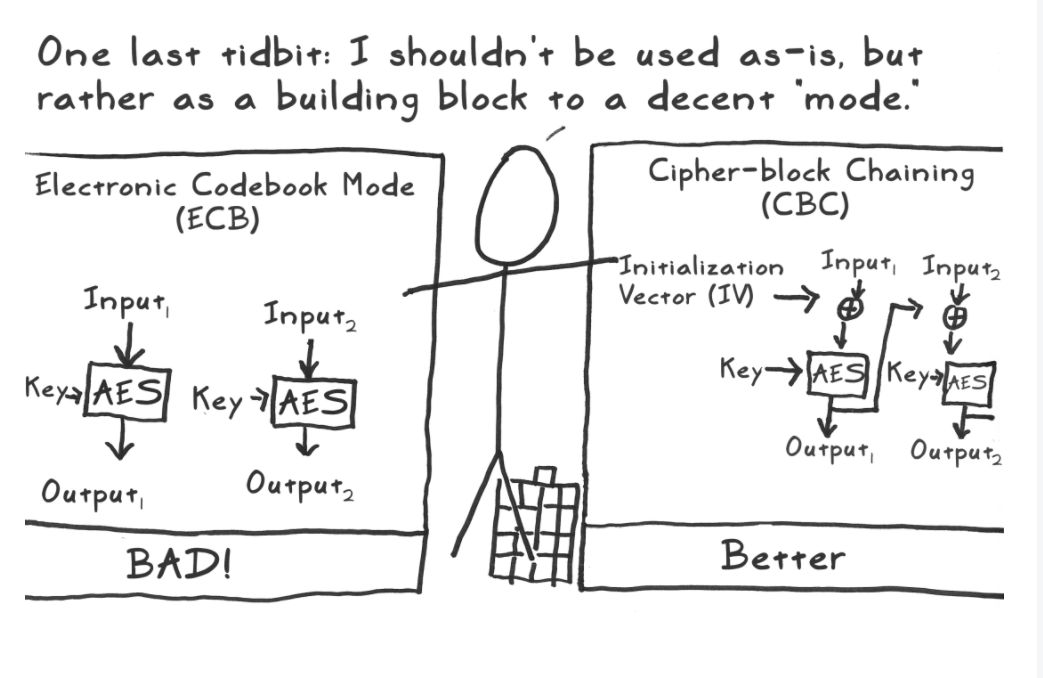 One last tidbit: I shouldn't be used as-is, but
rather as a building block to a decent "mode."
Electronic Codebook Mode
(ECB)
Input₁
Input₂
Key
AES
Key
AES
Output₁
Output₂
BAD!
Cipher-block Chaining
(CBC)
Initialization
Vector (IV)
Input₁
Input₂
Key
AES
Key
AES
Output₁
Output₂
Better